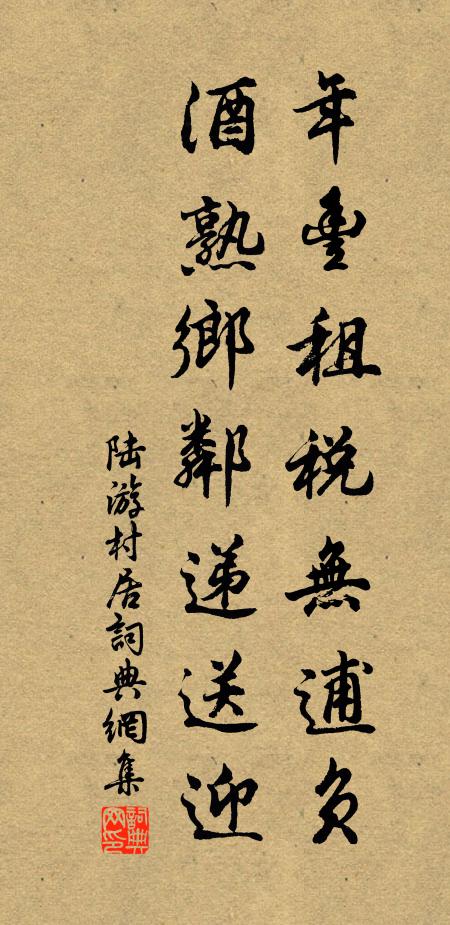 年豐租税無逋負
酒熟鄉鄰遞送迎
陆游村居詞典網集
詞典網印